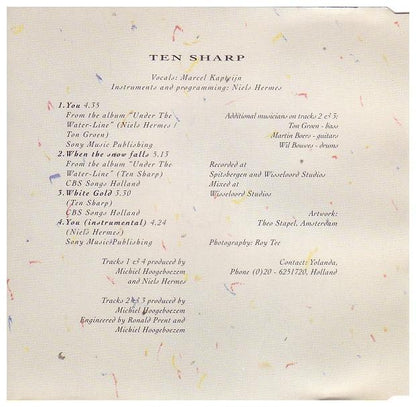 TEN SHARP
Vocals: Marcel Kapteijn
Instruments and programming: Niels Hermes
1.You 4.35
From the album "Under The
Water-Line" (Niels Hermes /
Ton Groen)
Sony Music Publishing
2.When the snow falls 5.13
From the album "Under The
Water-Line" (Ten Sharp)
CBS Songs Holland
3.White Gold 5.30
(Ten Sharp)
CBS Songs Holland
4.You (instrumental) 4.24
(Niels Hermes)
Sony Music Publishing
Tracks 1 & 4 produced by
Michiel Hoogeboezem
and Niels Hermes
Tracks 2 & 3 produced by
Michiel Hoogeboezem
Engineered by Ronald Prent and
Michiel Hoogeboezem
Additional musicians on tracks 2 & 3:
Ton Groen - bass
Martin Boers - guitars
Wil Bouwes - drums
Recorded at
Spitsbergen and Wisseloord Studios
Mixed at
Wisseloord Studios
Artwork:
Theo Stapel, Amsterdam
Photography: Roy Tee
Contact: Yolanda,
Phone (0)20 - 6251720, Holland